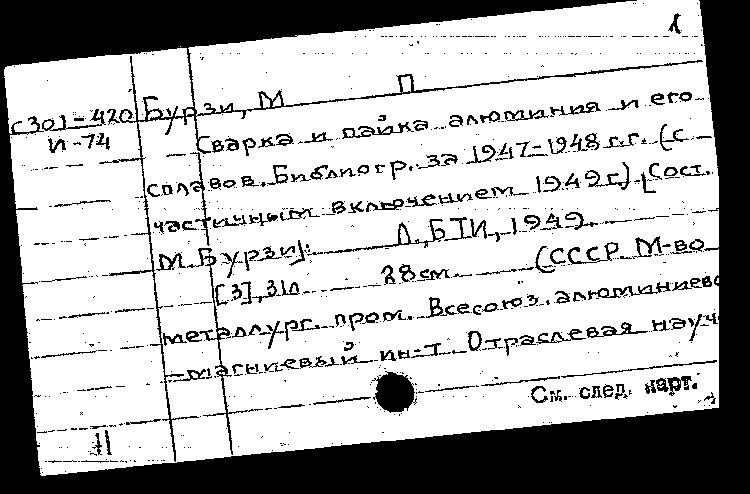 1
С301-420 Бурзи, М П
И-74
Сварка и пайка алюминия и его
сплавов. Библиогр. за 1947-1948 г.г. (с
частичным включением 1949 г.) [Сост.
М. Бурзи]. Л., БТИ, 1949.
[3], 31л 28см. (СССР. М-во
металлург. пром. Всесоюз. алюминиево
-магниевый ин-т. Отраслевая науч
См. след. карт.